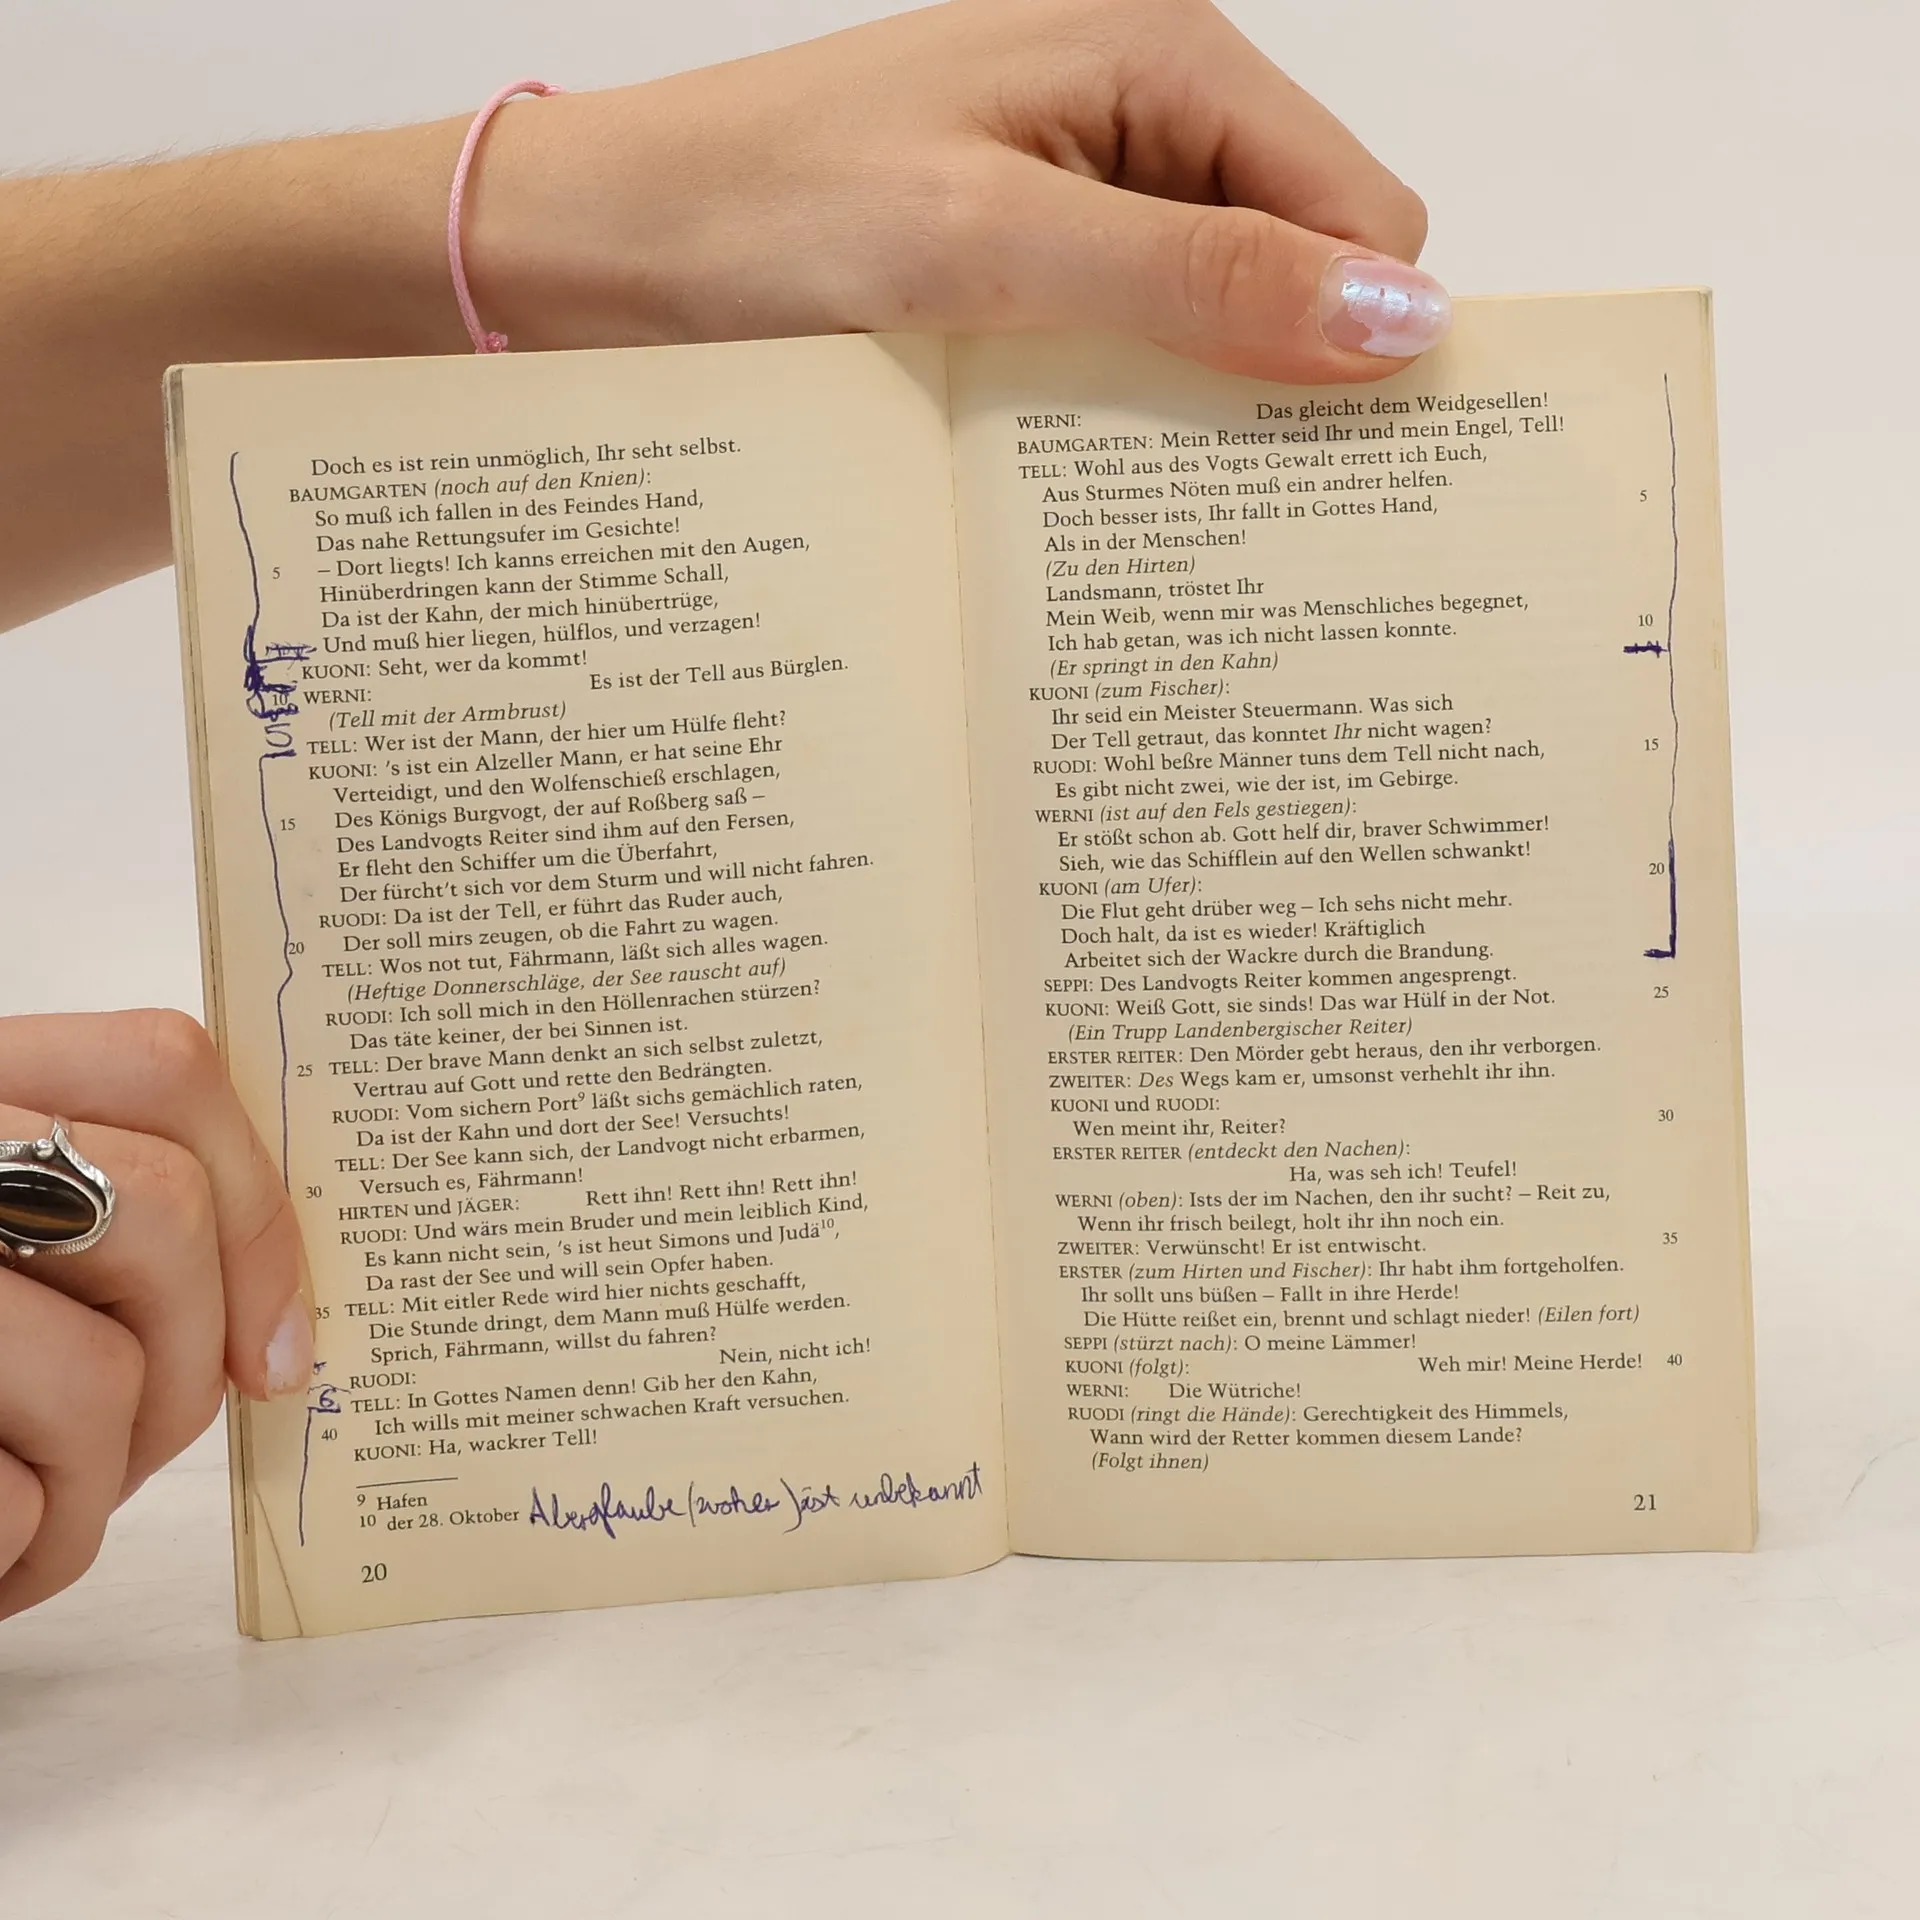 Doch es ist rein unmöglich, Ihr seht selbst.
BAUMGARTEN (noch auf den Knien):
So muß ich fallen in des Feindes Hand,
Das nahe Rettungsufer im Gesichte!
5 – Dort liegts! Ich kanns erreichen mit den Augen,
Hinüberdringen kann der Stimme Schall,
Da ist der Kahn, der mich hinübertrüge,
Und muß hier liegen, hülflos, und verzagen!
KUONI: Seht, wer da kommt!
10 WERNI: Es ist der Tell aus Bürglen.
(Tell mit der Armbrust)
5 TELL: Wer ist der Mann, der hier um Hülfe fleht?
KUONI: 's ist ein Alzeller Mann, er hat seine Ehr
Verteidigt, und den Wolfenschieß erschlagen,
15 Des Königs Burgvogt, der auf Roßberg saß –
Des Landvogts Reiter sind ihm auf den Fersen,
Er fleht den Schiffer um die Überfahrt,
Der fürcht't sich vor dem Sturm und will nicht fahren.
RUODI: Da ist der Tell, er führt das Ruder auch,
20 Der soll mirs zeugen, ob die Fahrt zu wagen.
TELL: Wos not tut, Fährmann, läßt sich alles wagen.
(Heftige Donnerschläge, der See rauscht auf)
RUODI: Ich soll mich in den Höllenrachen stürzen?
Das täte keiner, der bei Sinnen ist.
25 TELL: Der brave Mann denkt an sich selbst zuletzt,
Vertrau auf Gott und rette den Bedrängten.
RUODI: Vom sichern Port⁹ läßt sichs gemächlich raten,
Da ist der Kahn und dort der See! Versuchts!
TELL: Der See kann sich, der Landvogt nicht erbarmen,
30 Versuch es, Fährmann!
HIRTEN und JÄGER: Rett ihn! Rett ihn! Rett ihn!
RUODI: Und wärs mein Bruder und mein leiblich Kind,
Es kann nicht sein, 's ist heut Simons und Judä¹⁰,
Da rast der See und will sein Opfer haben.
35 TELL: Mit eitler Rede wird hier nichts geschafft,
Die Stunde dringt, dem Mann muß Hülfe werden.
Sprich, Fährmann, willst du fahren?
RUODI: Nein, nicht ich!
6 TELL: In Gottes Namen denn! Gib her den Kahn,
40 Ich wills mit meiner schwachen Kraft versuchen.
KUONI: Ha, wackrer Tell!
9 Hafen
10 der 28. Oktober Aberglaube (woher) ist unbekannt
20
WERNI: Das gleicht dem Weidgesellen!
BAUMGARTEN: Mein Retter seid Ihr und mein Engel, Tell!
TELL: Wohl aus des Vogts Gewalt errett ich Euch,
Aus Sturmes Nöten muß ein andrer helfen.
Doch besser ists, Ihr fallt in Gottes Hand, 5
Als in der Menschen!
(Zu den Hirten)
Landsmann, tröstet Ihr
Mein Weib, wenn mir was Menschliches begegnet,
Ich hab getan, was ich nicht lassen konnte. 10
(Er springt in den Kahn)
KUONI (zum Fischer):
Ihr seid ein Meister Steuermann. Was sich
Der Tell getraut, das konntet Ihr nicht wagen?
RUODI: Wohl beßre Männer tuns dem Tell nicht nach, 15
Es gibt nicht zwei, wie der ist, im Gebirge.
WERNI (ist auf den Fels gestiegen):
Er stößt schon ab. Gott helf dir, braver Schwimmer!
Sieh, wie das Schifflein auf den Wellen schwankt!
KUONI (am Ufer): 20
Die Flut geht drüber weg – Ich sehs nicht mehr.
Doch halt, da ist es wieder! Kräftiglich
Arbeitet sich der Wackre durch die Brandung.
SEPPI: Des Landvogts Reiter kommen angesprengt.
KUONI: Weiß Gott, sie sinds! Das war Hülf in der Not. 25
(Ein Trupp Landenbergischer Reiter)
ERSTER REITER: Den Mörder gebt heraus, den ihr verborgen.
ZWEITER: Des Wegs kam er, umsonst verhehlt ihr ihn.
KUONI und RUODI:
Wen meint ihr, Reiter? 30
ERSTER REITER (entdeckt den Nachen):
Ha, was seh ich! Teufel!
WERNI (oben): Ists der im Nachen, den ihr sucht? – Reit zu,
Wenn ihr frisch beilegt, holt ihr ihn noch ein.
ZWEITER: Verwünscht! Er ist entwischt. 35
ERSTER (zum Hirten und Fischer): Ihr habt ihm fortgeholfen.
Ihr sollt uns büßen – Fallt in ihre Herde!
Die Hütte reißet ein, brennt und schlagt nieder! (Eilen fort)
SEPPI (stürzt nach): O meine Lämmer!
KUONI (folgt): Weh mir! Meine Herde! 40
WERNI: Die Wütriche!
RUODI (ringt die Hände): Gerechtigkeit des Himmels,
Wann wird der Retter kommen diesem Lande?
(Folgt ihnen)
21